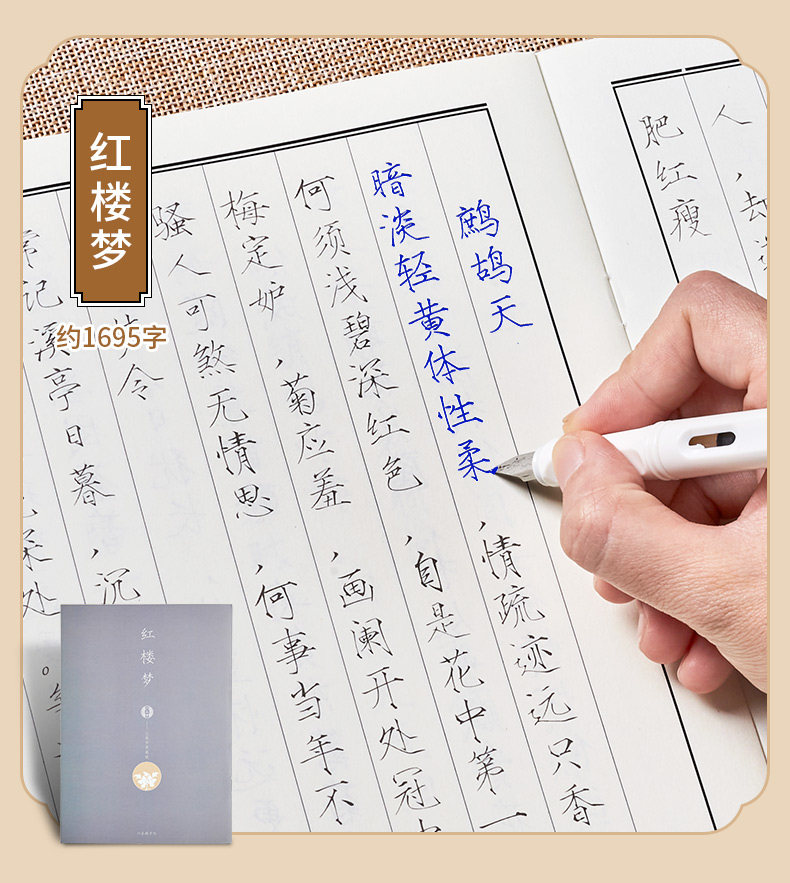 红楼梦
约1695字
人，却
肥红瘦
鹧鸪天
暗淡轻黄体性柔，情疏迹远只香
何须浅碧深红色，自是花中第一
梅定妒，菊应羞，画阑开处冠
骚人可煞无情思，何事当年不
令
记溪亭日暮，沉
处。
红楼梦